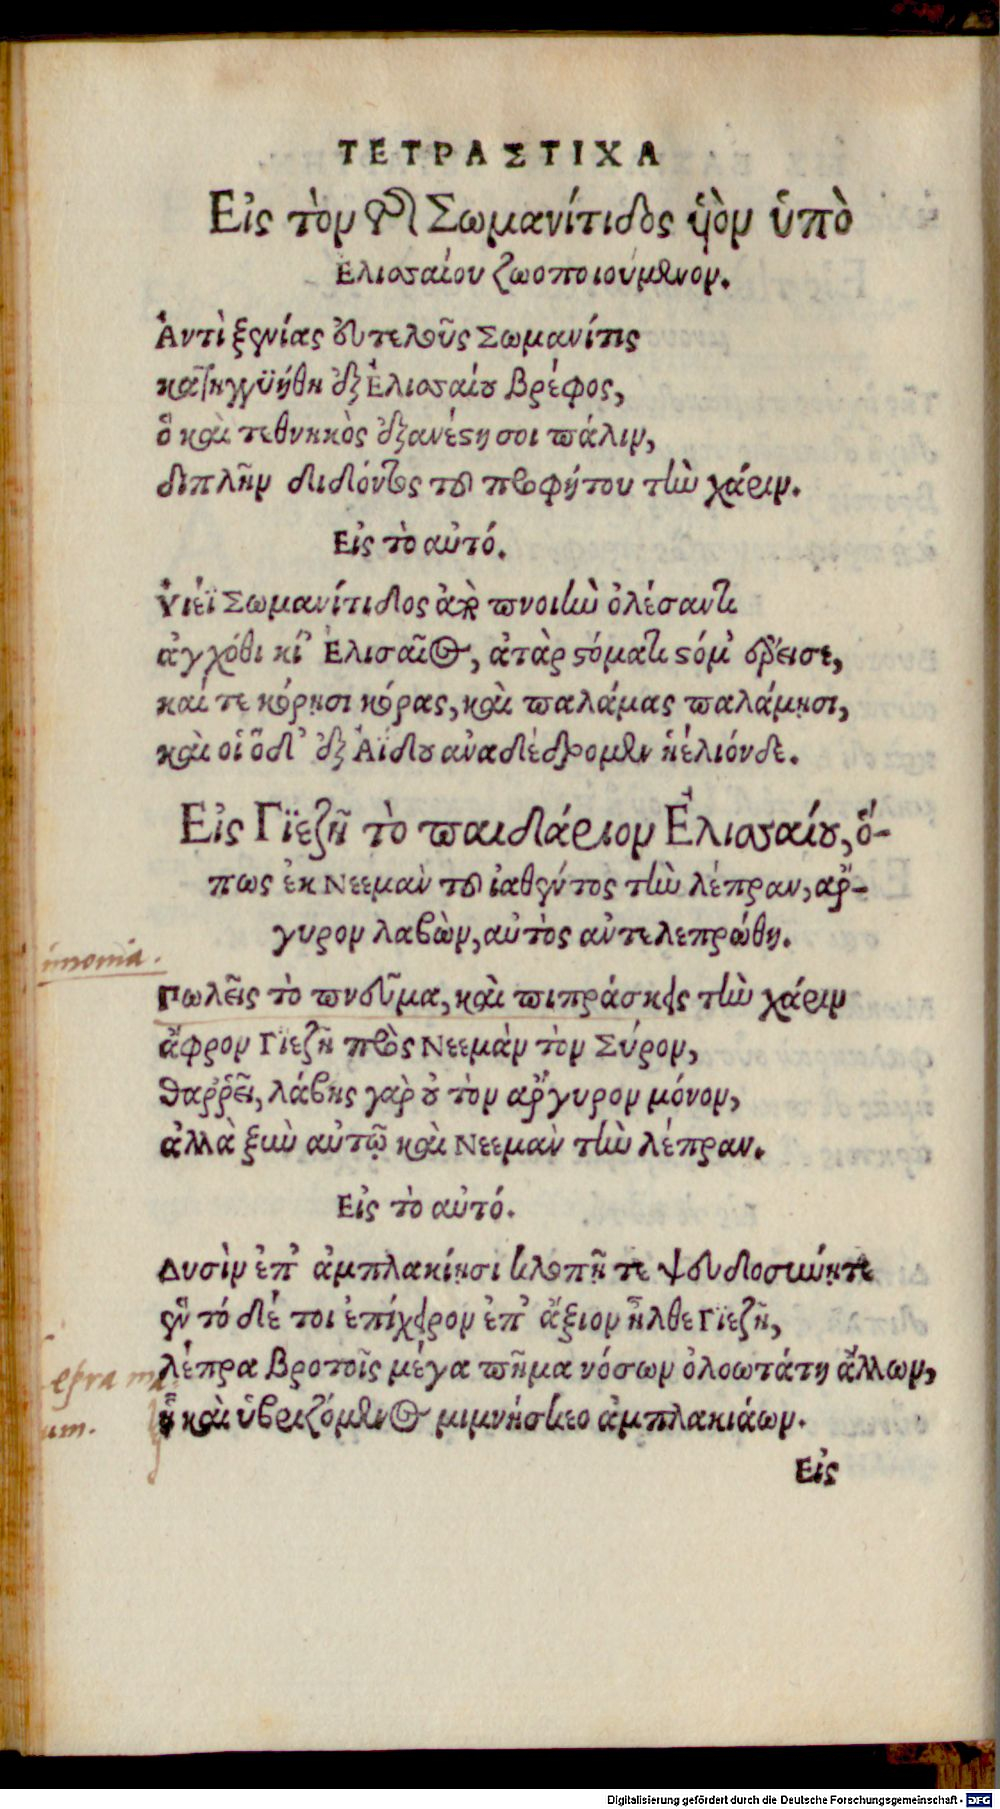 ΤΕΤΡΑΣΤΙΧΑ
Εἰς τὸν τῆς Σωμανίτιδος υἱὸν ὑπὸ
Ελισσαίου ζωοποιούμενον.
Ἀντὶ ξενίας εὐτελοῦς Σωμανίτις
κατηγγυήθη ἐξ Ἐλισσαίου βρέφος,
ὃ καὶ τεθνηκὸς ἐξανέστη σοι πάλιν,
διπλῆν διδόντος τοῦ προφήτου τὴν χάριν.
Εἰς τὸ αὐτό.
Υἱέϊ Σωμανίτιδος ἄρα πνοιὴν ὀλέσαντι
ἀγχόθι κεῖτ' Ἐλισαῖος, ἀτὰρ στόματι στόμ' ἔρεισε,
καί τε κόρῃσι κόρας, καὶ παλάμας παλάμῃσι,
καὶ οἱ ὅδ' ἐξ Ἀΐδου ἀναδέδρομεν ἠέλιόνδε.
Εἰς Γϊεζῆ τὸ παιδάριον Ἐλισσαίου, ὅ-
πως ἐκ Νεεμὰν τοῦ ἰαθέντος τὴν λέπραν, ἀρ-
γυρον λαβὼν, αὐτὸς ἀντελεπρώθη.
Πωλεῖς τὸ πνεῦμα, καὶ πιπράσκεις τὴν χάριν
ἄφρον Γϊεζῆ πρὸς Νεεμὰν τὸν Σύρον,
θαρρεῖ, λάβῃς γὰρ οὐ τὸν ἄργυρον μόνον,
ἀλλὰ ξὺν αὐτῷ καὶ Νεεμὰν τὴν λέπραν.
Εἰς τὸ αὐτό.
Δυσὶν ἐπ' ἀμπλακίῃσι κλοπῇ τε ψευδοσύνῃ τε
ἓν τό δέ τοι ἐπίχειρον ἐπ' ἄξιον ἦλθε Γϊεζῆ,
λέπρα βροτοῖς μέγα πῆμα νόσων ὀλοωτάτη ἄλλων,
ᾗ καὶ ὑβριζόμενος μιμνήσκεο ἀμπλακιάων.
Εἰς
Digitalisierung gefördert durch die Deutsche Forschungsgemeinschaft - DFG